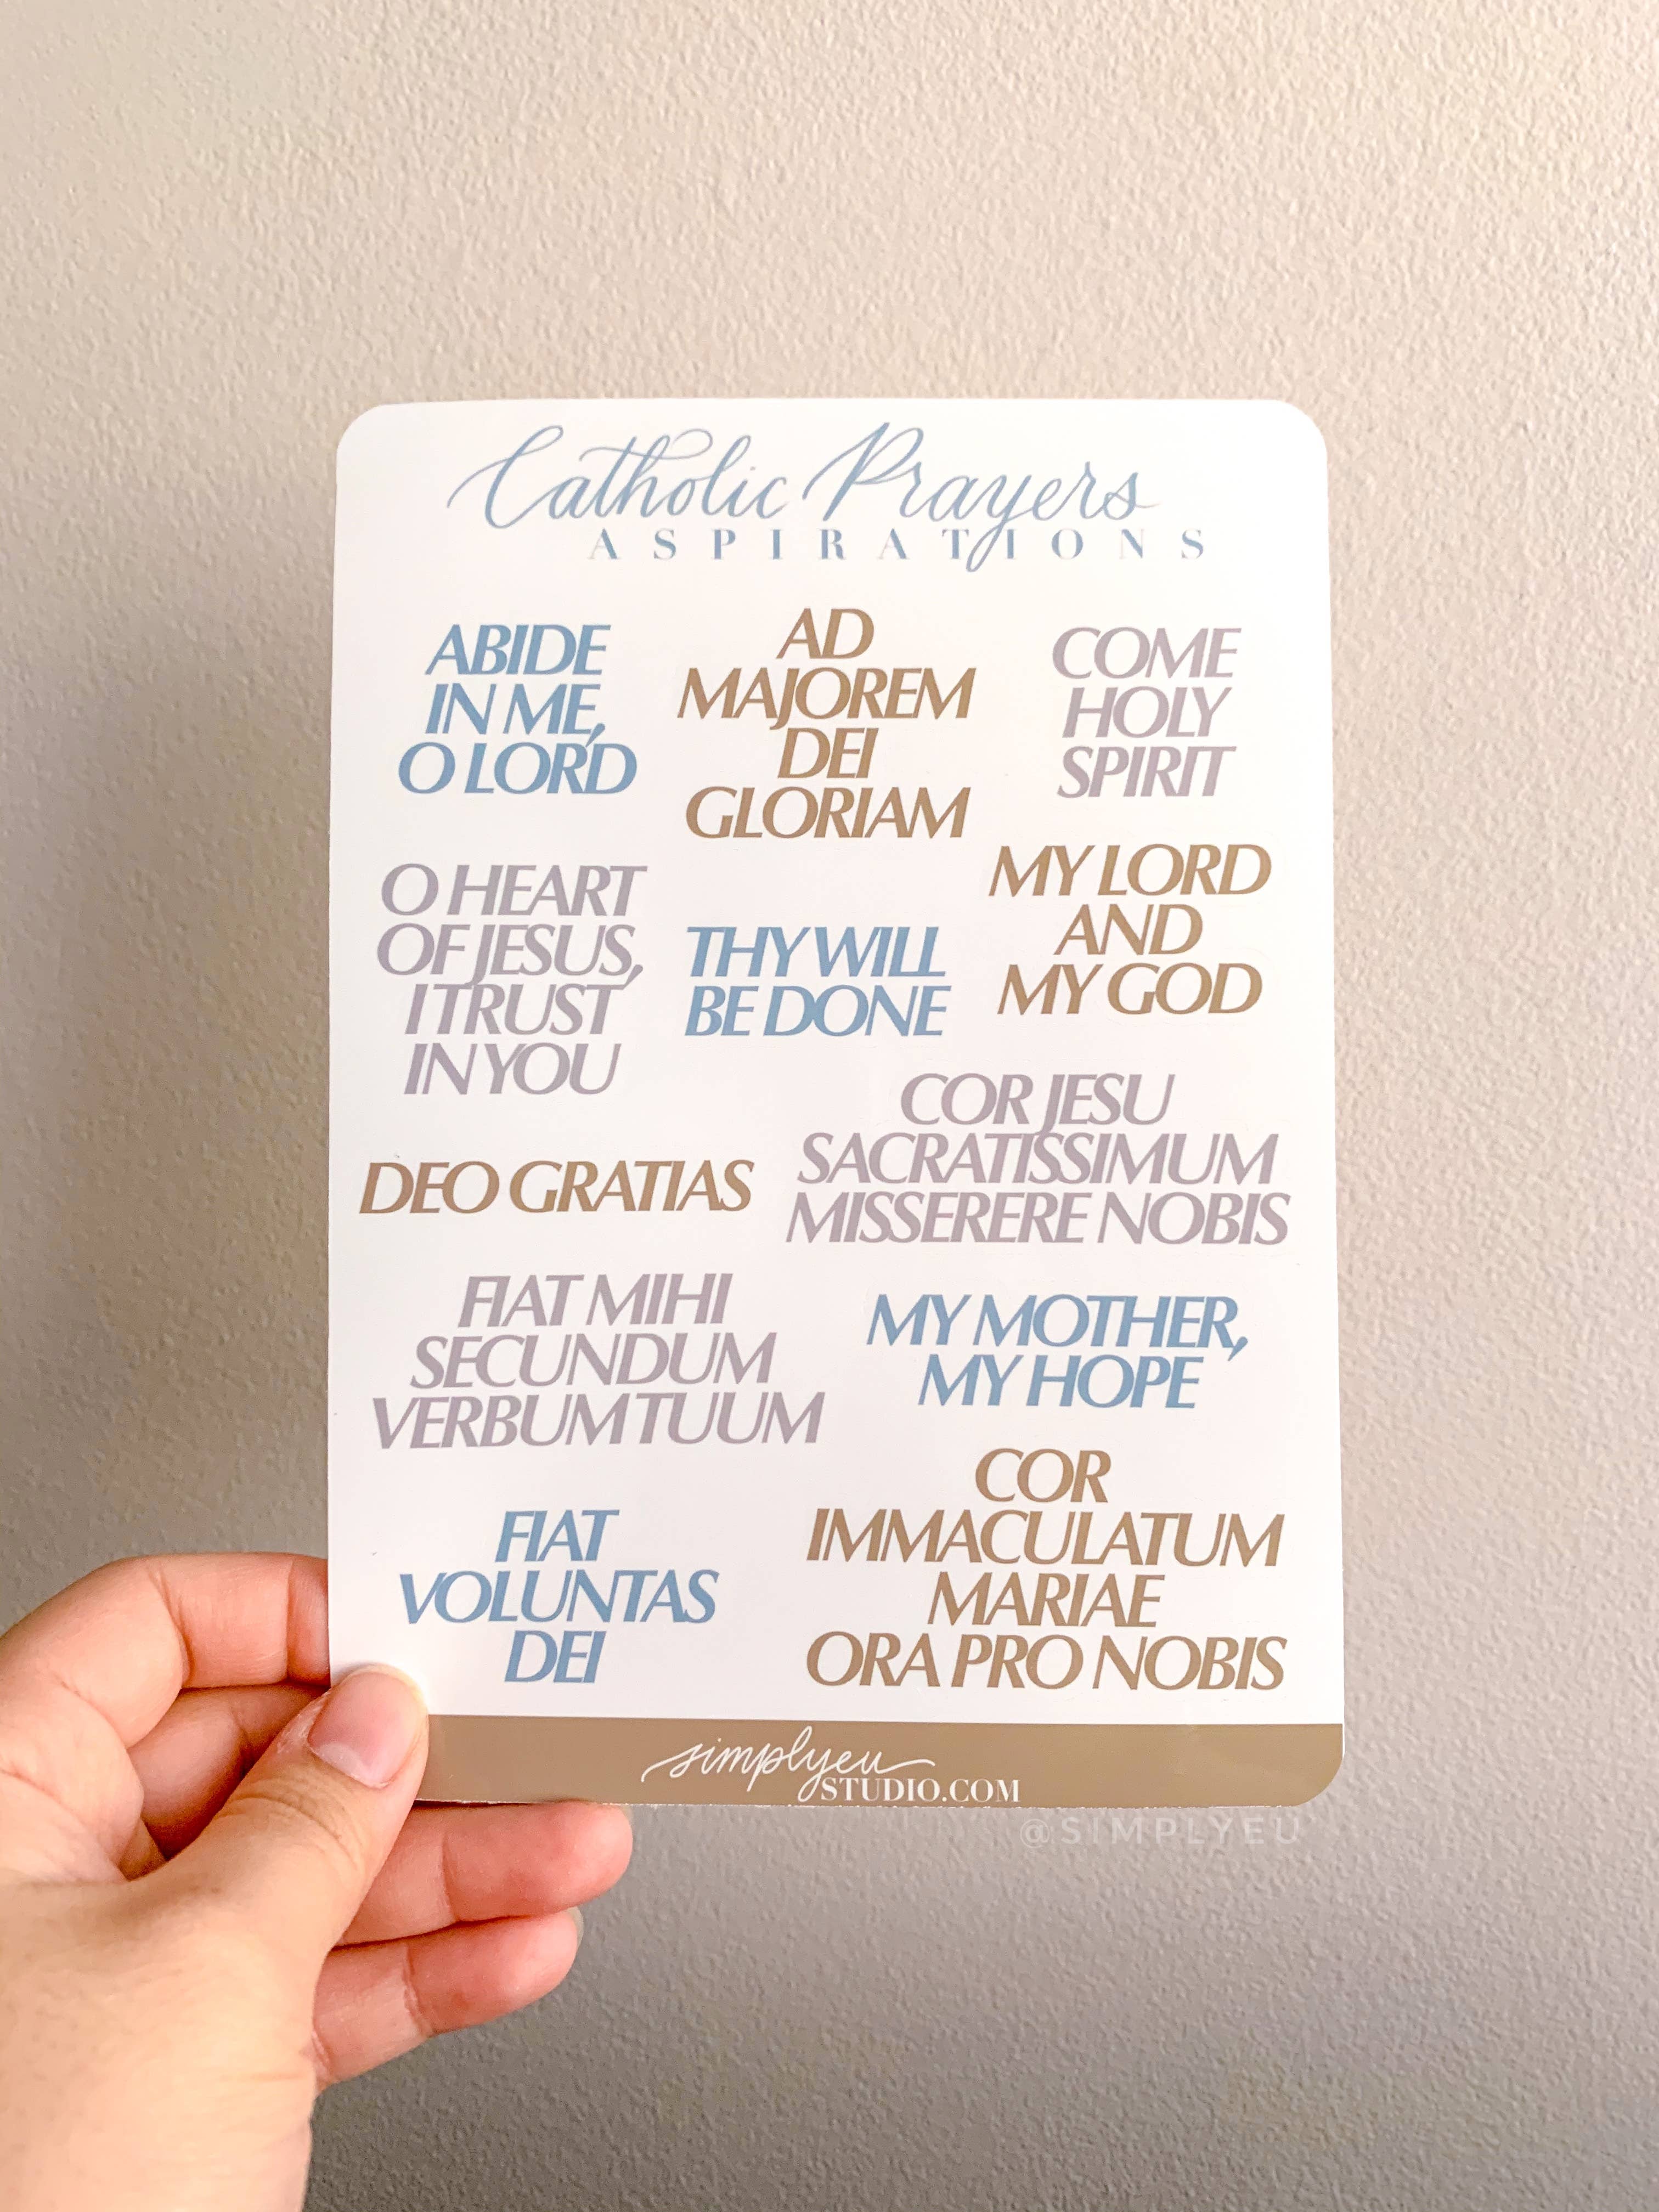 Catholic Prayers
ASPIRATIONS
ABIDE
IN ME,
O LORD
AD
MAJOREM
DEI
GLORIAM
COME
HOLY
SPIRIT
O HEART
OF JESUS,
I TRUST
IN YOU
THY WILL
BE DONE
MY LORD
AND
MY GOD
DEO GRATIAS
COR JESU
SACRATISSIMUM
MISSERERE NOBIS
FIAT MIHI
SECUNDUM
VERBUM TUUM
MY MOTHER,
MY HOPE
FIAT
VOLUNTAS
DEI
COR
IMMACULATUM
MARIAE
ORA PRO NOBIS
simplyeu
STUDIO.COM
@SIMPLYEU